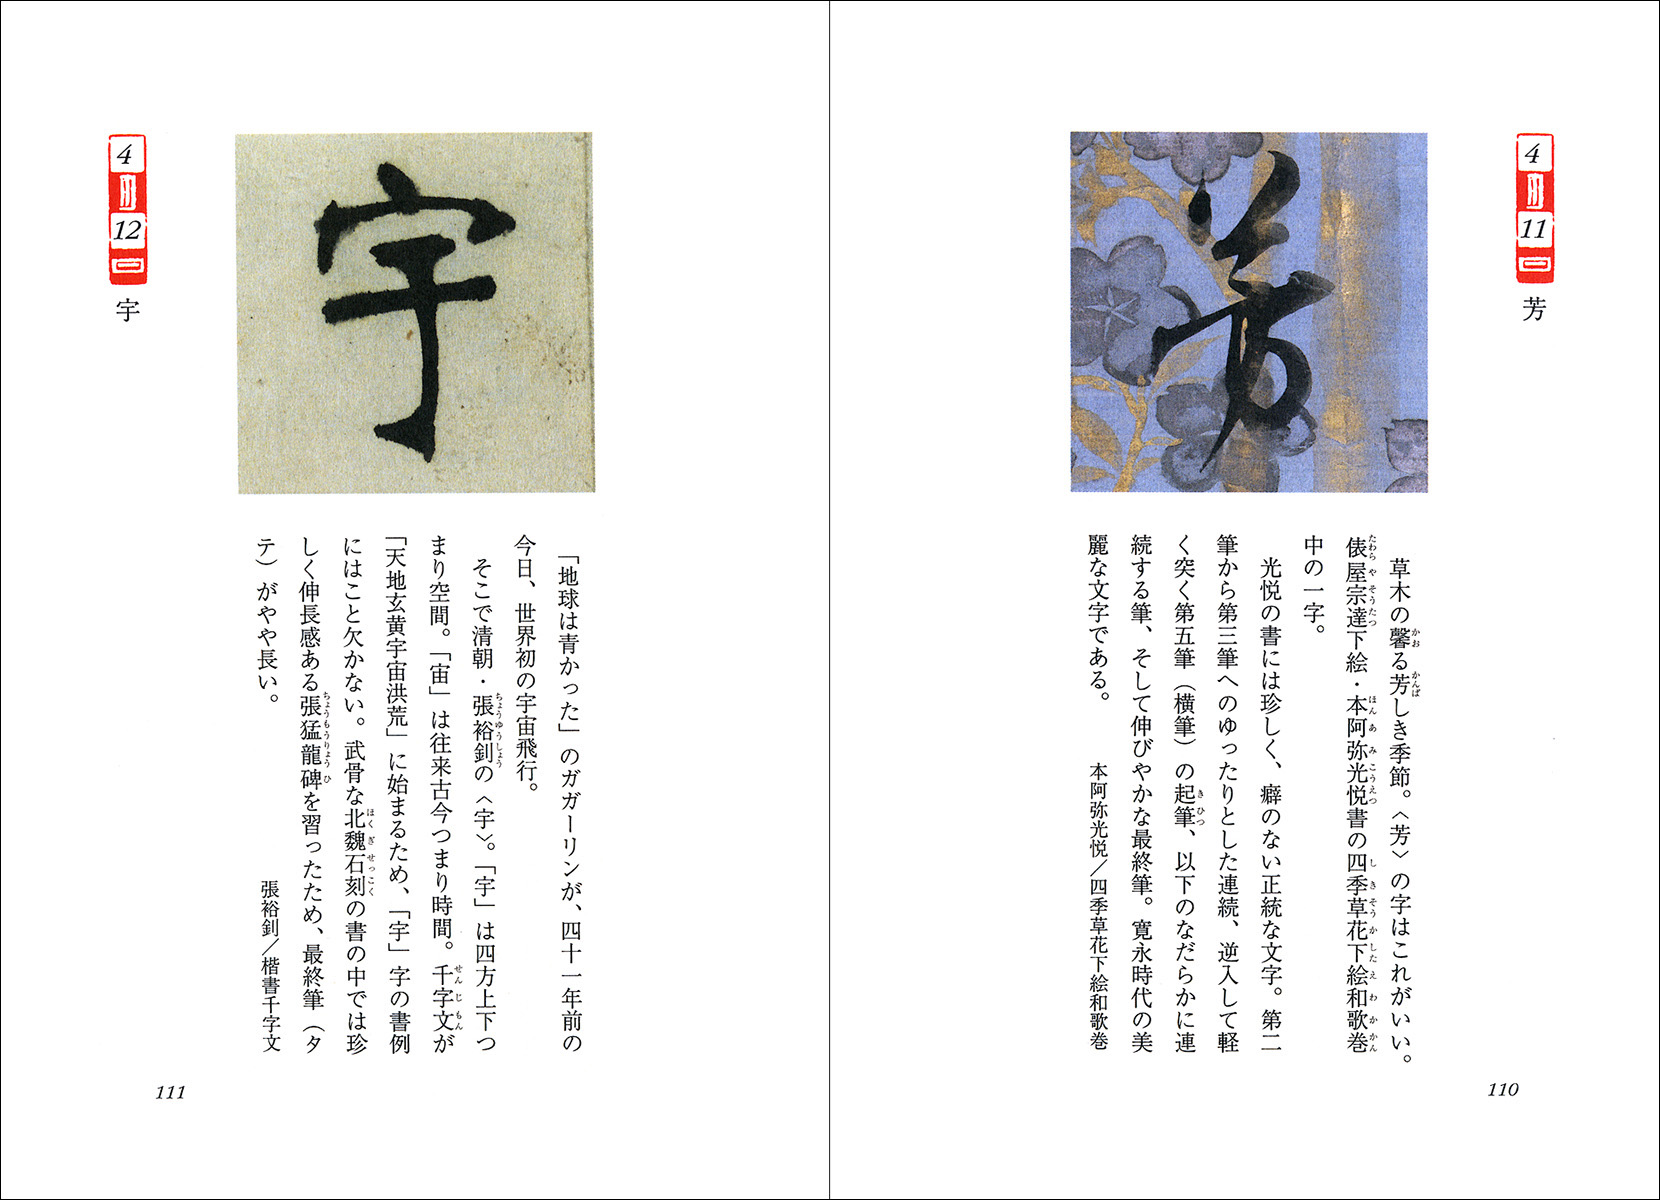 4
月
11
日
芳
芳
草木の馨る芳しき季節。〈芳〉の字はこれがいい。
俵屋宗達下絵・本阿弥光悦書の四季草花下絵和歌巻
中の一字。
光悦の書には珍しく、癖のない正統な文字。第二
筆から第三筆へのゆったりとした連続、逆入して軽
く突く第五筆（横筆）の起筆、以下のなだらかに連
続する筆、そして伸びやかな最終筆。寛永時代の美
麗な文字である。
本阿弥光悦／四季草花下絵和歌巻
110
4
月
12
日
宇
宇
「地球は青かった」のガガーリンが、四十一年前の
今日、世界初の宇宙飛行。
そこで清朝・張裕釗の〈宇〉。「宇」は四方上下つ
まり空間。「宙」は往来古今つまり時間。千字文が
「天地玄黄宇宙洪荒」に始まるため、「宇」字の書例
にはこと欠かない。武骨な北魏石刻の書の中では珍
しく伸長感ある張猛龍碑を習ったため、最終筆（タ
テ）がやや長い。
張裕釗／楷書千字文
111